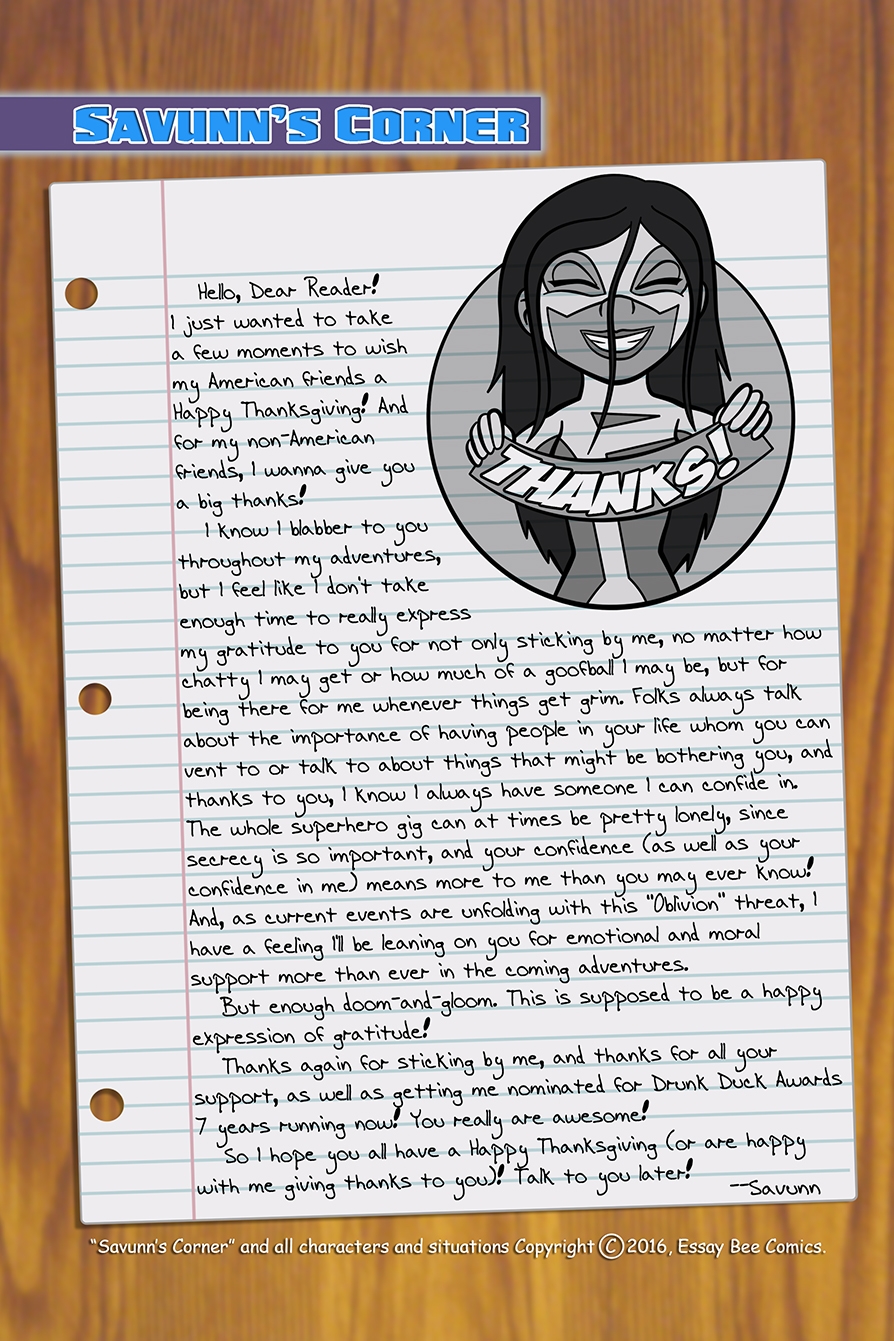 SAVUNN'S CORNER
Hello, Dear Reader!
I just wanted to take
a few moments to wish
my American friends a
Happy Thanksgiving! And
for my non-American
friends, I wanna give you
a big thanks!
I know I blabber to you
throughout my adventures,
but I feel like I don't take
enough time to really express
THANKS!
my gratitude to you for not only sticking by me, no matter how
chatty I may get or how much of a goofball I may be, but for
being there for me whenever things get grim. Folks always talk
about the importance of having people in your life whom you can
vent to or talk to about things that might be bothering you, and
thanks to you, I know I always have someone I can confide in.
The whole superhero gig can at times be pretty lonely, since
secrecy is so important, and your confidence (as well as your
confidence in me) means more to me than you may ever know!
And, as current events are unfolding with this "Oblivion" threat, I
have a feeling I'll be leaning on you for emotional and moral
support more than ever in the coming adventures.
But enough doom-and-gloom. This is supposed to be a happy
expression of gratitude!
Thanks again for sticking by me, and thanks for all your
support, as well as getting me nominated for Drunk Duck Awards
7 years running now! You really are awesome!
So I hope you all have a Happy Thanksgiving (or are happy
with me giving thanks to you)! Talk to you later!
--Savunn
"Savunn's Corner" and all characters and situations Copyright © 2016, Essay Bee Comics.